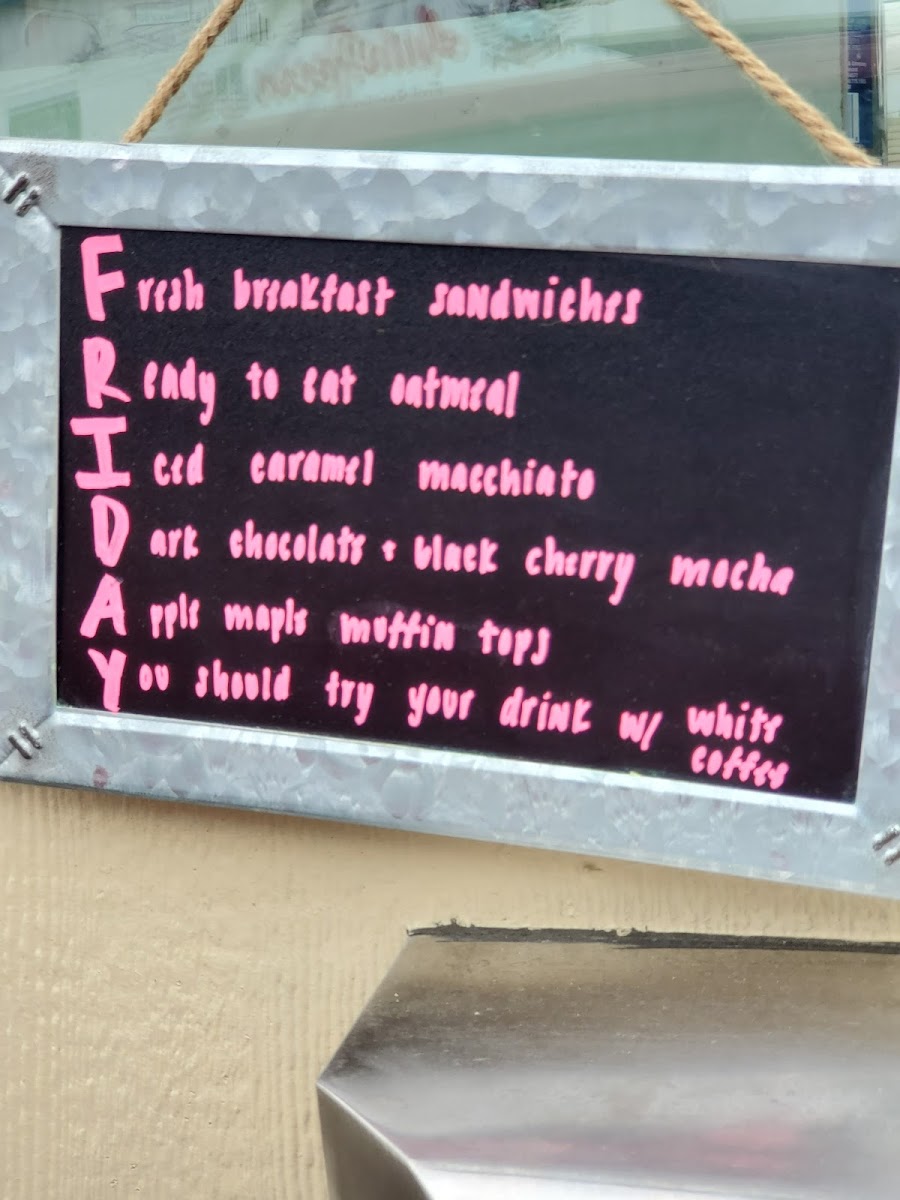 Fresh breakfast sandwiches
Ready to eat oatmeal
Iced caramel macchiato
Dark chocolate + black cherry mocha
Apple maple muffin tops
You should try your drink w/ white
coffee